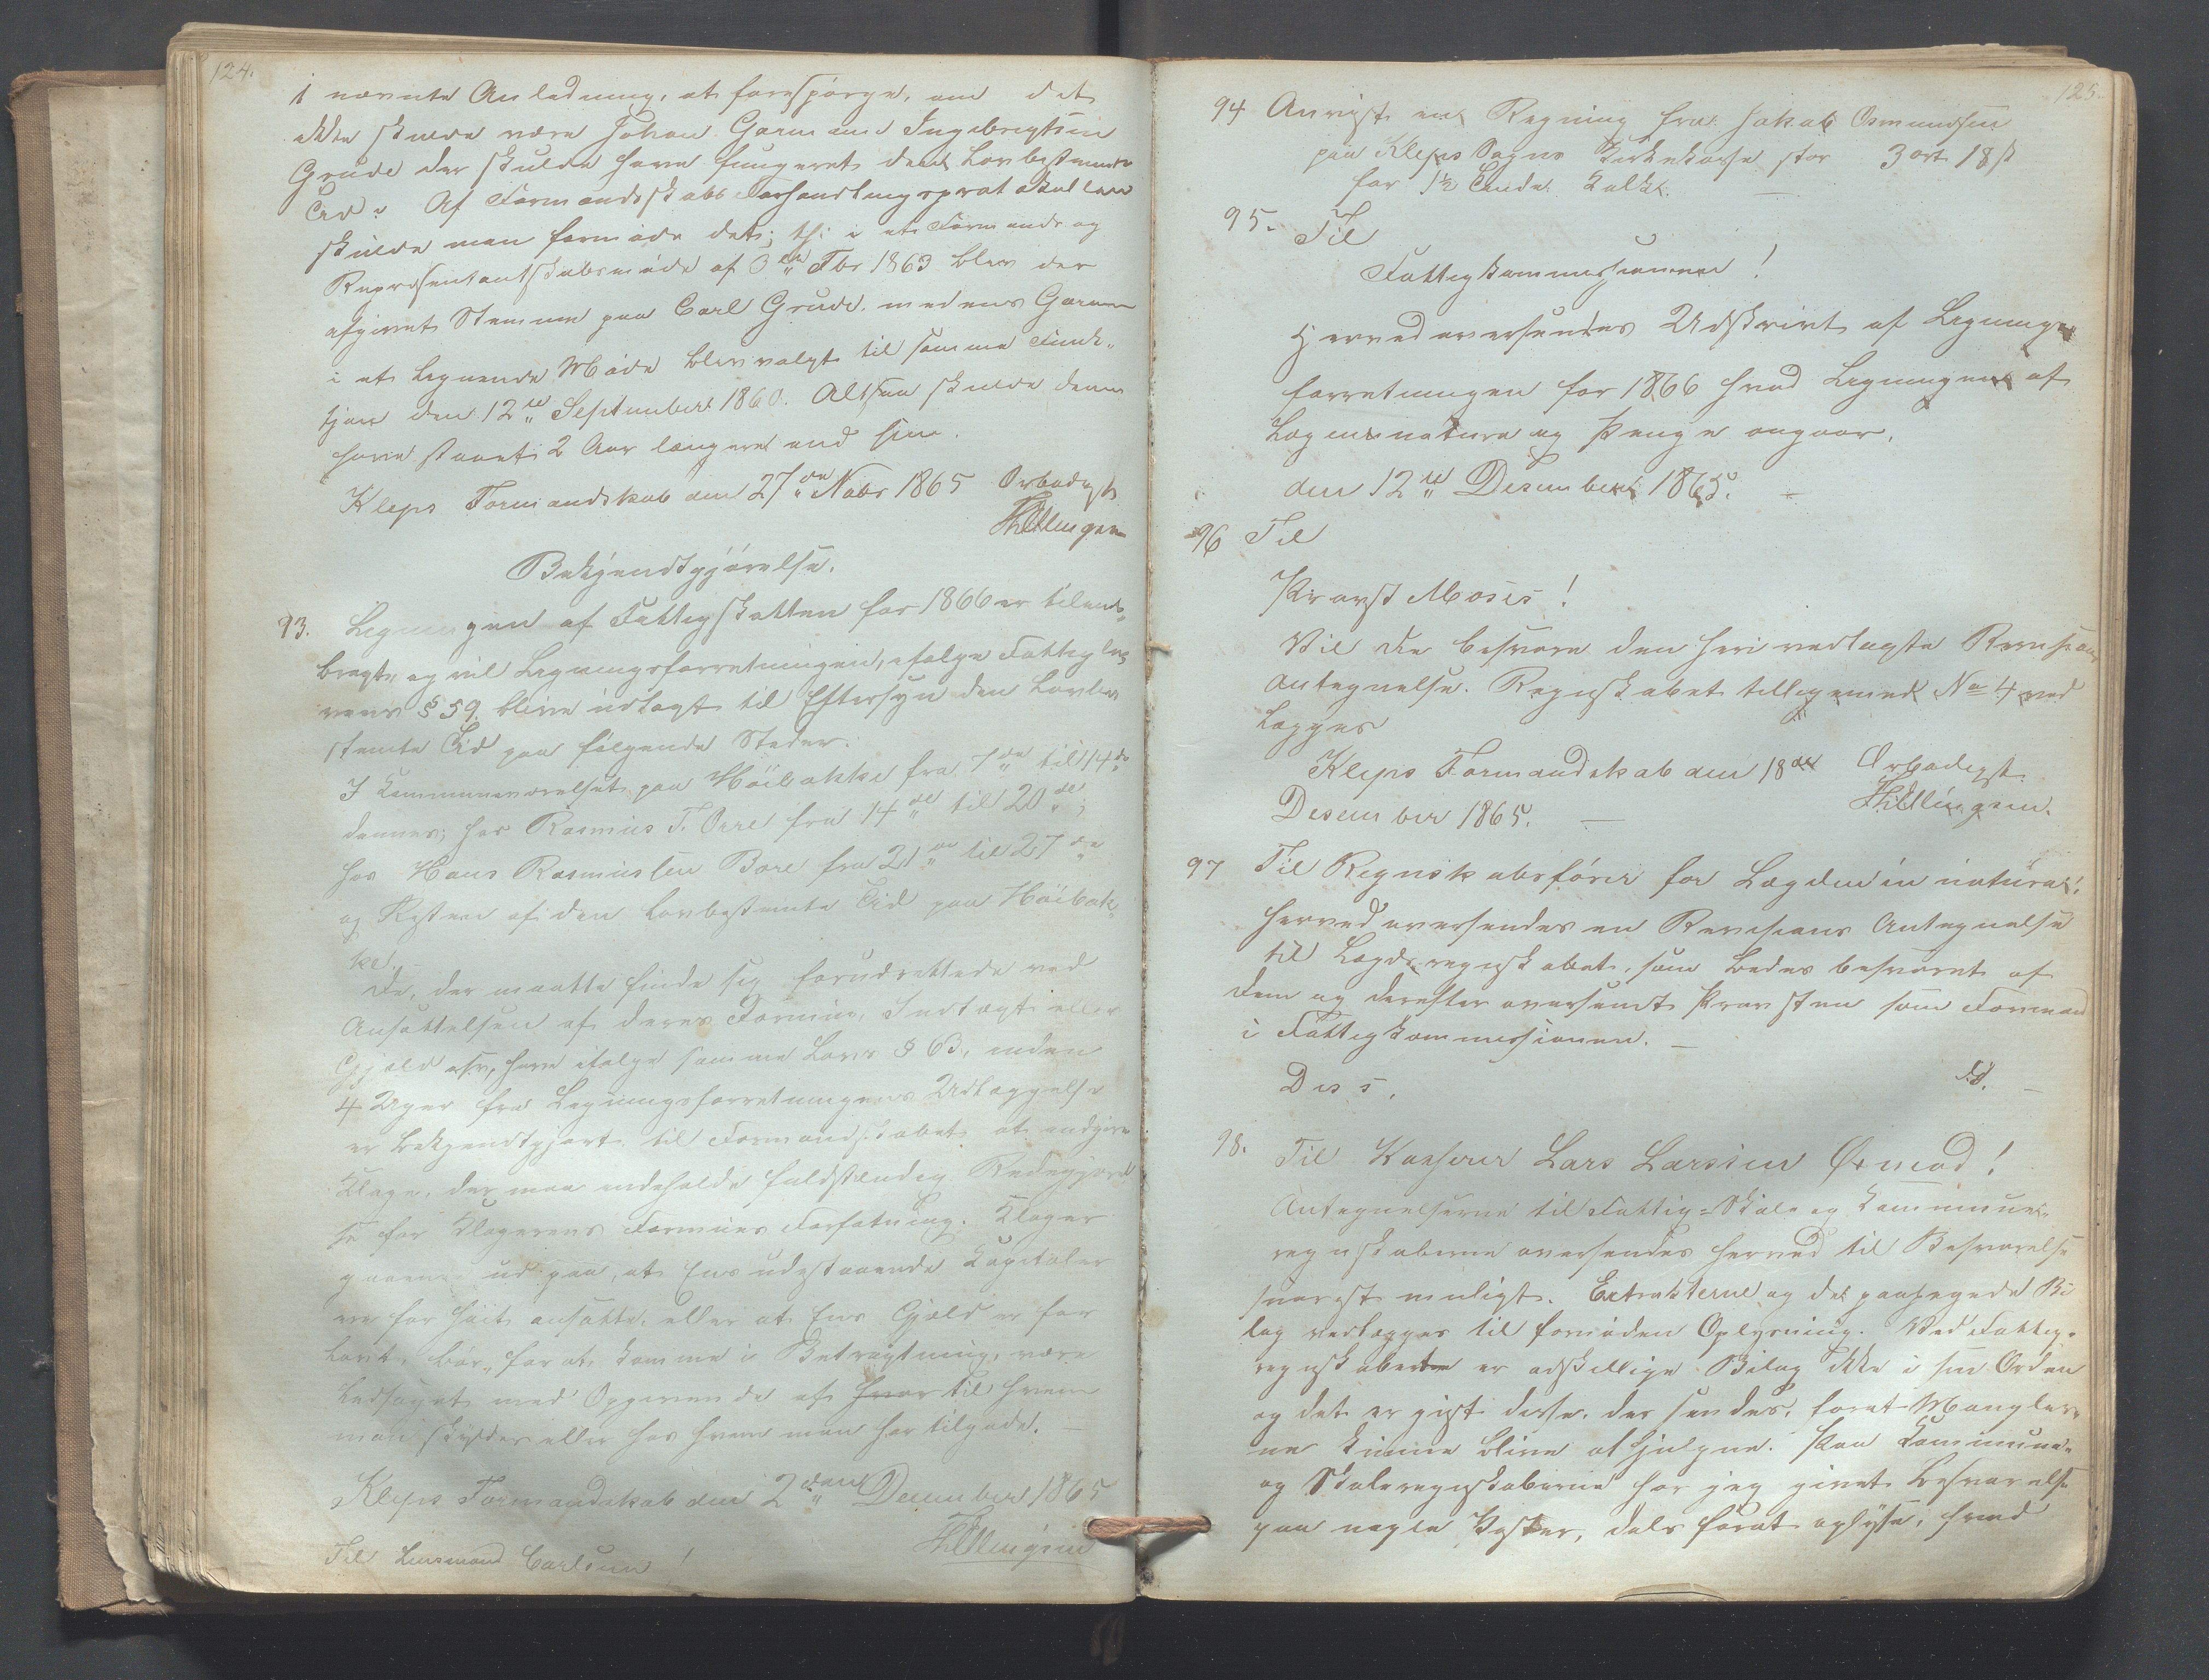 124.
i nævnte Anledning, at forespørge, om det
ikke skulde være Johan Garmann Ingebrigtsen
Grude der skulde have fungeret den Lovbestemte
Tid? Af Formandskabs Forhandlingsprotokollen
skulde man formode det; thi i et Formands og
Repræsentantskabsmøde af Fbr 1863 blev der
afgivet Stemme paa Carl Grude, medens Garman
i et lignende Møde blev valgt til samme Funk-
tjon den 12te September 1860. Altsaa skulde denne
have staaet 2 Aar længere end hin.
Kleps Formandskab den 27de Nobr 1865 Ærbødigst
Bekjendtgjörelse.
93. Ligningen af Fattigskatten for 1866 er tilende-
bragt, og vil Ligningsforretningen, ifølge Fattiglo-
vens § 59, blive udlagt til Eftersyn den Lovbe-
stemte Tid paa følgende Steder:
I Kommuneværelset paa Höibakke fra 7de til 14de
dennes; hos Rasmus T. Orre fra 14de til 20de;
hos Hans Rasmussen Bore fra 21de til 27de
og Resten af den Lovbestemte Tid paa Höibak-
ke. -
De, der maatte finde sig forurettede ved
Ansættelsen af deres Formue, Indtægt eller
Gjæld osv, have ifølge samme Lovs § 63, inden
4 Uger fra Ligningsforretningens Udlæggelse
er bekjendtgjort til Formandskabet at indgive
Klage, der maa indeholde fuldstændig Redegjørel
se for Klagerens Formues Forfatning. Klager
gaaende ud paa, at Ens udestaaende Kapitaler
ere for höit ansatte, eller at Ens Gjæld er for
lavt, bör, for at komme i Betragtning, være
ledsaget med Opgivende af hvor til hvem
man skylder eller hos hvem man har tilgode. -
Kleps Formandskab den 2den December 1865
Til Lensmand Carlsen!
125.
94 Anvist en Regning fra Jakob Osmundsen
paa Kleps Sogns Kirkekasse stor 3 ort 18 s
for 1½ Tønde Kalk. -
95. Til
Fattigkommissionen!
Hervedoversendes Udskrivt af Lignings
forretningen for 1866 hvad Ligningen af
Lægdnatura og Penge angaar.
den 12te Desember 1865. -
96 Til
Provst Moses!
Vil De besvare den heri vedlagte Revisions
antegnelse. Regnskabet tilligemed No 4 ved
lægges
Kleps Formandskab den 18de Ærbødigst
Desember 1865. -
97 Til Regnskabsförer for Lægden in natura!
Herved oversendes en Revisions Antegnelse
til Lægdsregnskabet, som bedes besvaret af
Dem og derefter oversendt Provsten som Formand
i Fattigkommissionen. -
D. s. s.
98. Til Kasserer Lars Larssen Øxnevad!
Antegnelserne til Fattig-Skole og Kommune-
regnskaberne oversendes herved til Besvarelse
snarest muligt. Extrakterne og det paaklagede Bi
lag vedlægges til fornöden Oplysning. Ved Fattig-
regnskabet er adskillige Bilag ikke i sin Orden
og det er just disse, der sendes, forat Mangler-
ne kunne blive afhjulpne. Paa Kommune-
og Skoleregnskaberne har jeg givet Besvarelse
paa nogle Poster, dels forat oplyse, hvad